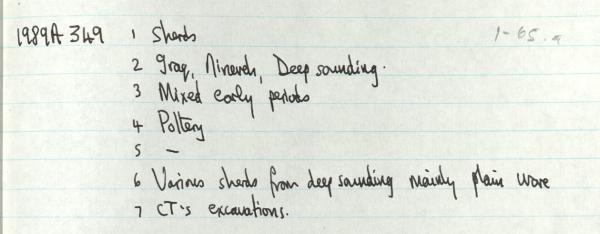 1989A 349 1 Sherds 1-65.a
2 Iraq, Nineveh, Deep sounding.
3 Mixed early periods
4 Pottery
5 —
6 Various sherds from deep sounding mainly plain ware
7 CT's excavations.